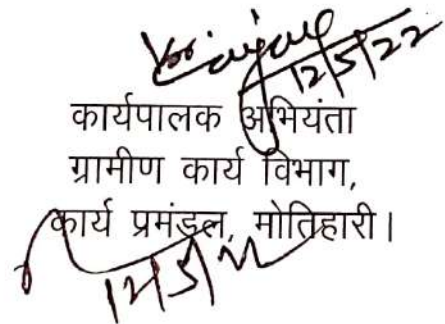 12/5/22
कार्यपालक अभियंता
ग्रामीण कार्य विभाग,
कार्य प्रमंडल, मोतिहारी।
12/5/22